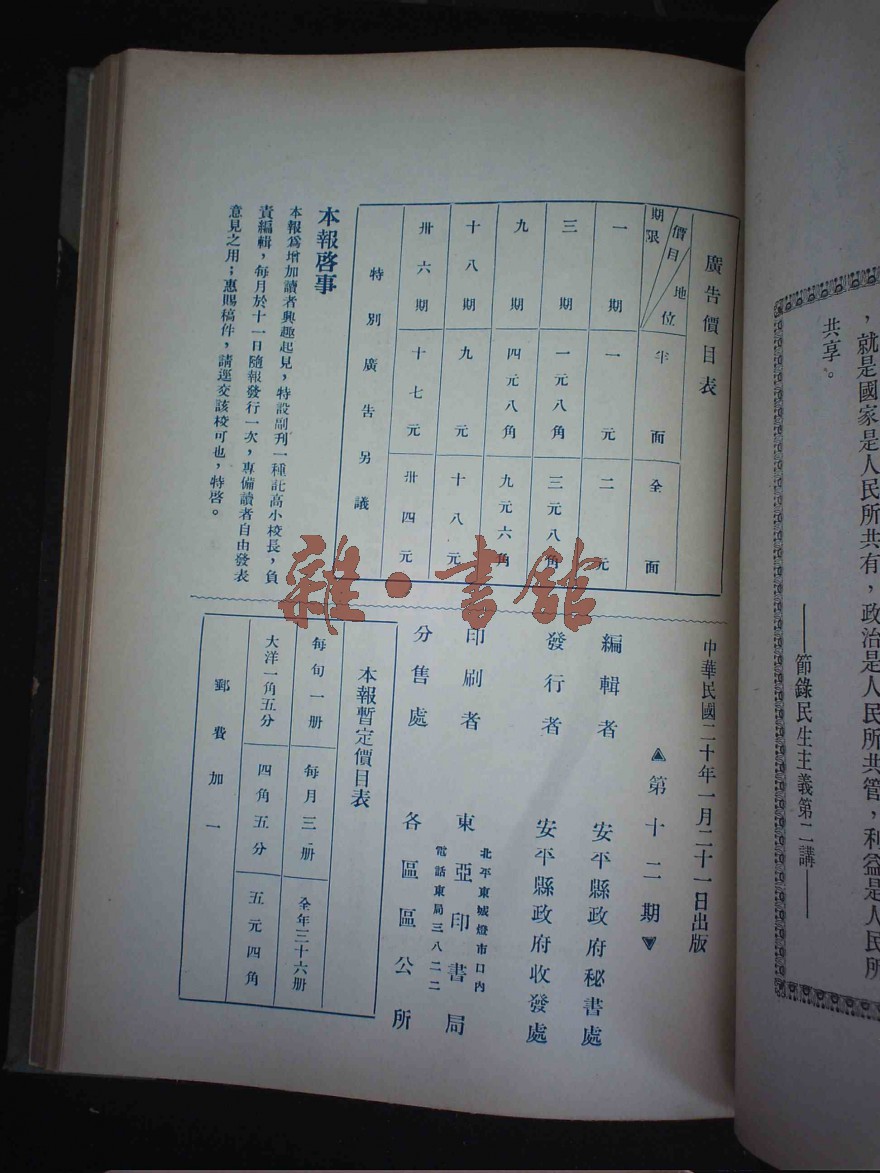 ，就是國家是人民所共有，政治是人民所共管，利益是人民所
共享。
——節錄民生主義第二講——
廣告價目表
期限 價目 地位 半面 全面
一期 一元 二元
三期 一元八角 三元八角
九期 四元八角 九元六角
十八期 九元 十八元
卅六期 十七元 卅四元
特別廣告另議
本報啓事
本報爲增加讀者興趣起見，特設副刋一種託高小校長，負
責編輯，每月於十一日隨報發行一次，專備讀者自由發表
意見之用；惠賜稿件，請逕交該校可也，特啓。
中華民國二十年一月二十一日出版
▲第十二期▼
編輯者 安平縣政府秘書處
發行者 安平縣政府收發處
北平東城燈市口內
印刷者 東亞印書局
電話東局三八二二
分售處 各區區公所
本報暫定價目表
每旬一册 每月三册 全年三十六册
大洋一角五分 四角五分 五元四角
郵費加一
雜·書館